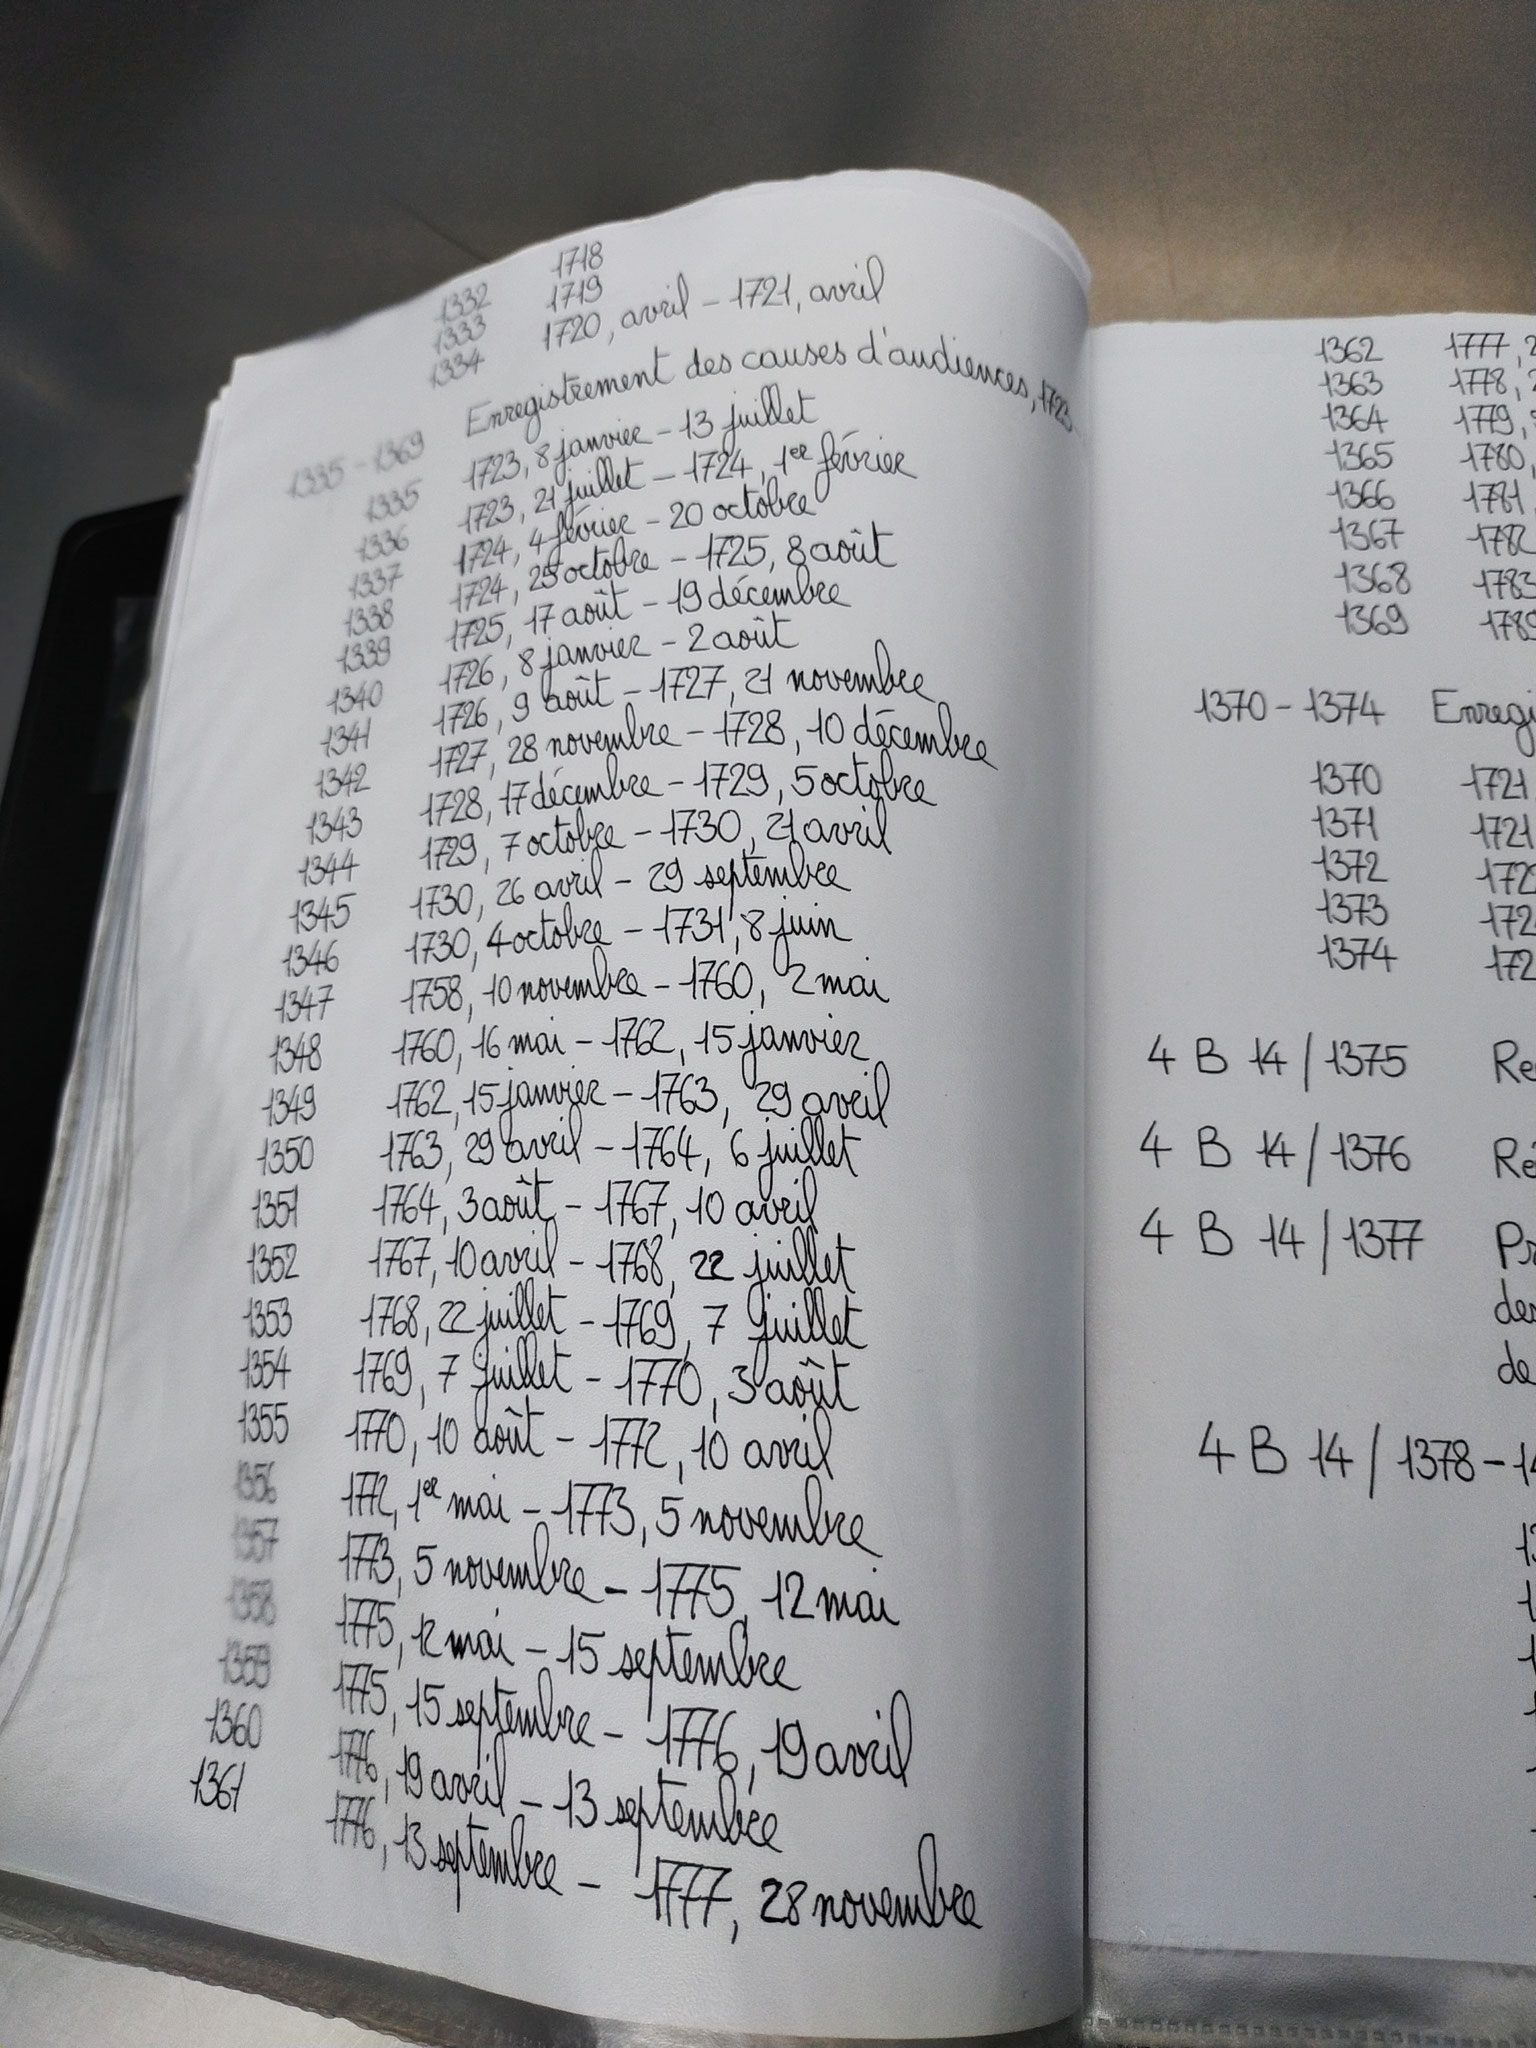 1332 1718
1333 1719
1334 1720, avril – 1721, avril
1335 – 1369 Enregistrement des causes d'audiences, 1723
1335 1723, 8 janvier – 13 juillet
1336 1723, 21 juillet – 1724, 1er février
1337 1724, 4 février – 20 octobre
1338 1724, 25 octobre – 1725, 8 août
1339 1725, 17 août – 19 décembre
1340 1726, 8 janvier – 2 août
1341 1726, 9 août – 1727, 21 novembre
1342 1727, 28 novembre – 1728, 10 décembre
1343 1728, 17 décembre – 1729, 5 octobre
1344 1729, 7 octobre – 1730, 21 avril
1345 1730, 26 avril – 29 septembre
1346 1730, 4 octobre – 1731, 8 juin
1347 1758, 10 novembre – 1760, 2 mai
1348 1760, 16 mai – 1762, 15 janvier
1349 1762, 15 janvier – 1763, 29 avril
1350 1763, 29 avril – 1764, 6 juillet
1351 1764, 3 août – 1767, 10 avril
1352 1767, 10 avril – 1768, 22 juillet
1353 1768, 22 juillet – 1769, 7 juillet
1354 1769, 7 juillet – 1770, 3 août
1355 1770, 10 août – 1772, 10 avril
1356 1772, 1er mai – 1773, 5 novembre
1357 1773, 5 novembre – 1775, 12 mai
1358 1775, 12 mai – 15 septembre
1359 1775, 15 septembre – 1776, 19 avril
1360 1776, 19 avril – 13 septembre
1361 1776, 13 septembre – 1777, 28 novembre
1362 1777,
1363 1778,
1364 1779,
1365 1780,
1366 1781
1367 1782
1368 1783
1369 178
1370 – 1374 Enregi
1370 1721
1371 1721
1372 172
1373 172
1374 172
4 B 14 / 1375 Re
4 B 14 / 1376 Ré
4 B 14 / 1377 Pr
des
de
4 B 14 / 1378 – 14